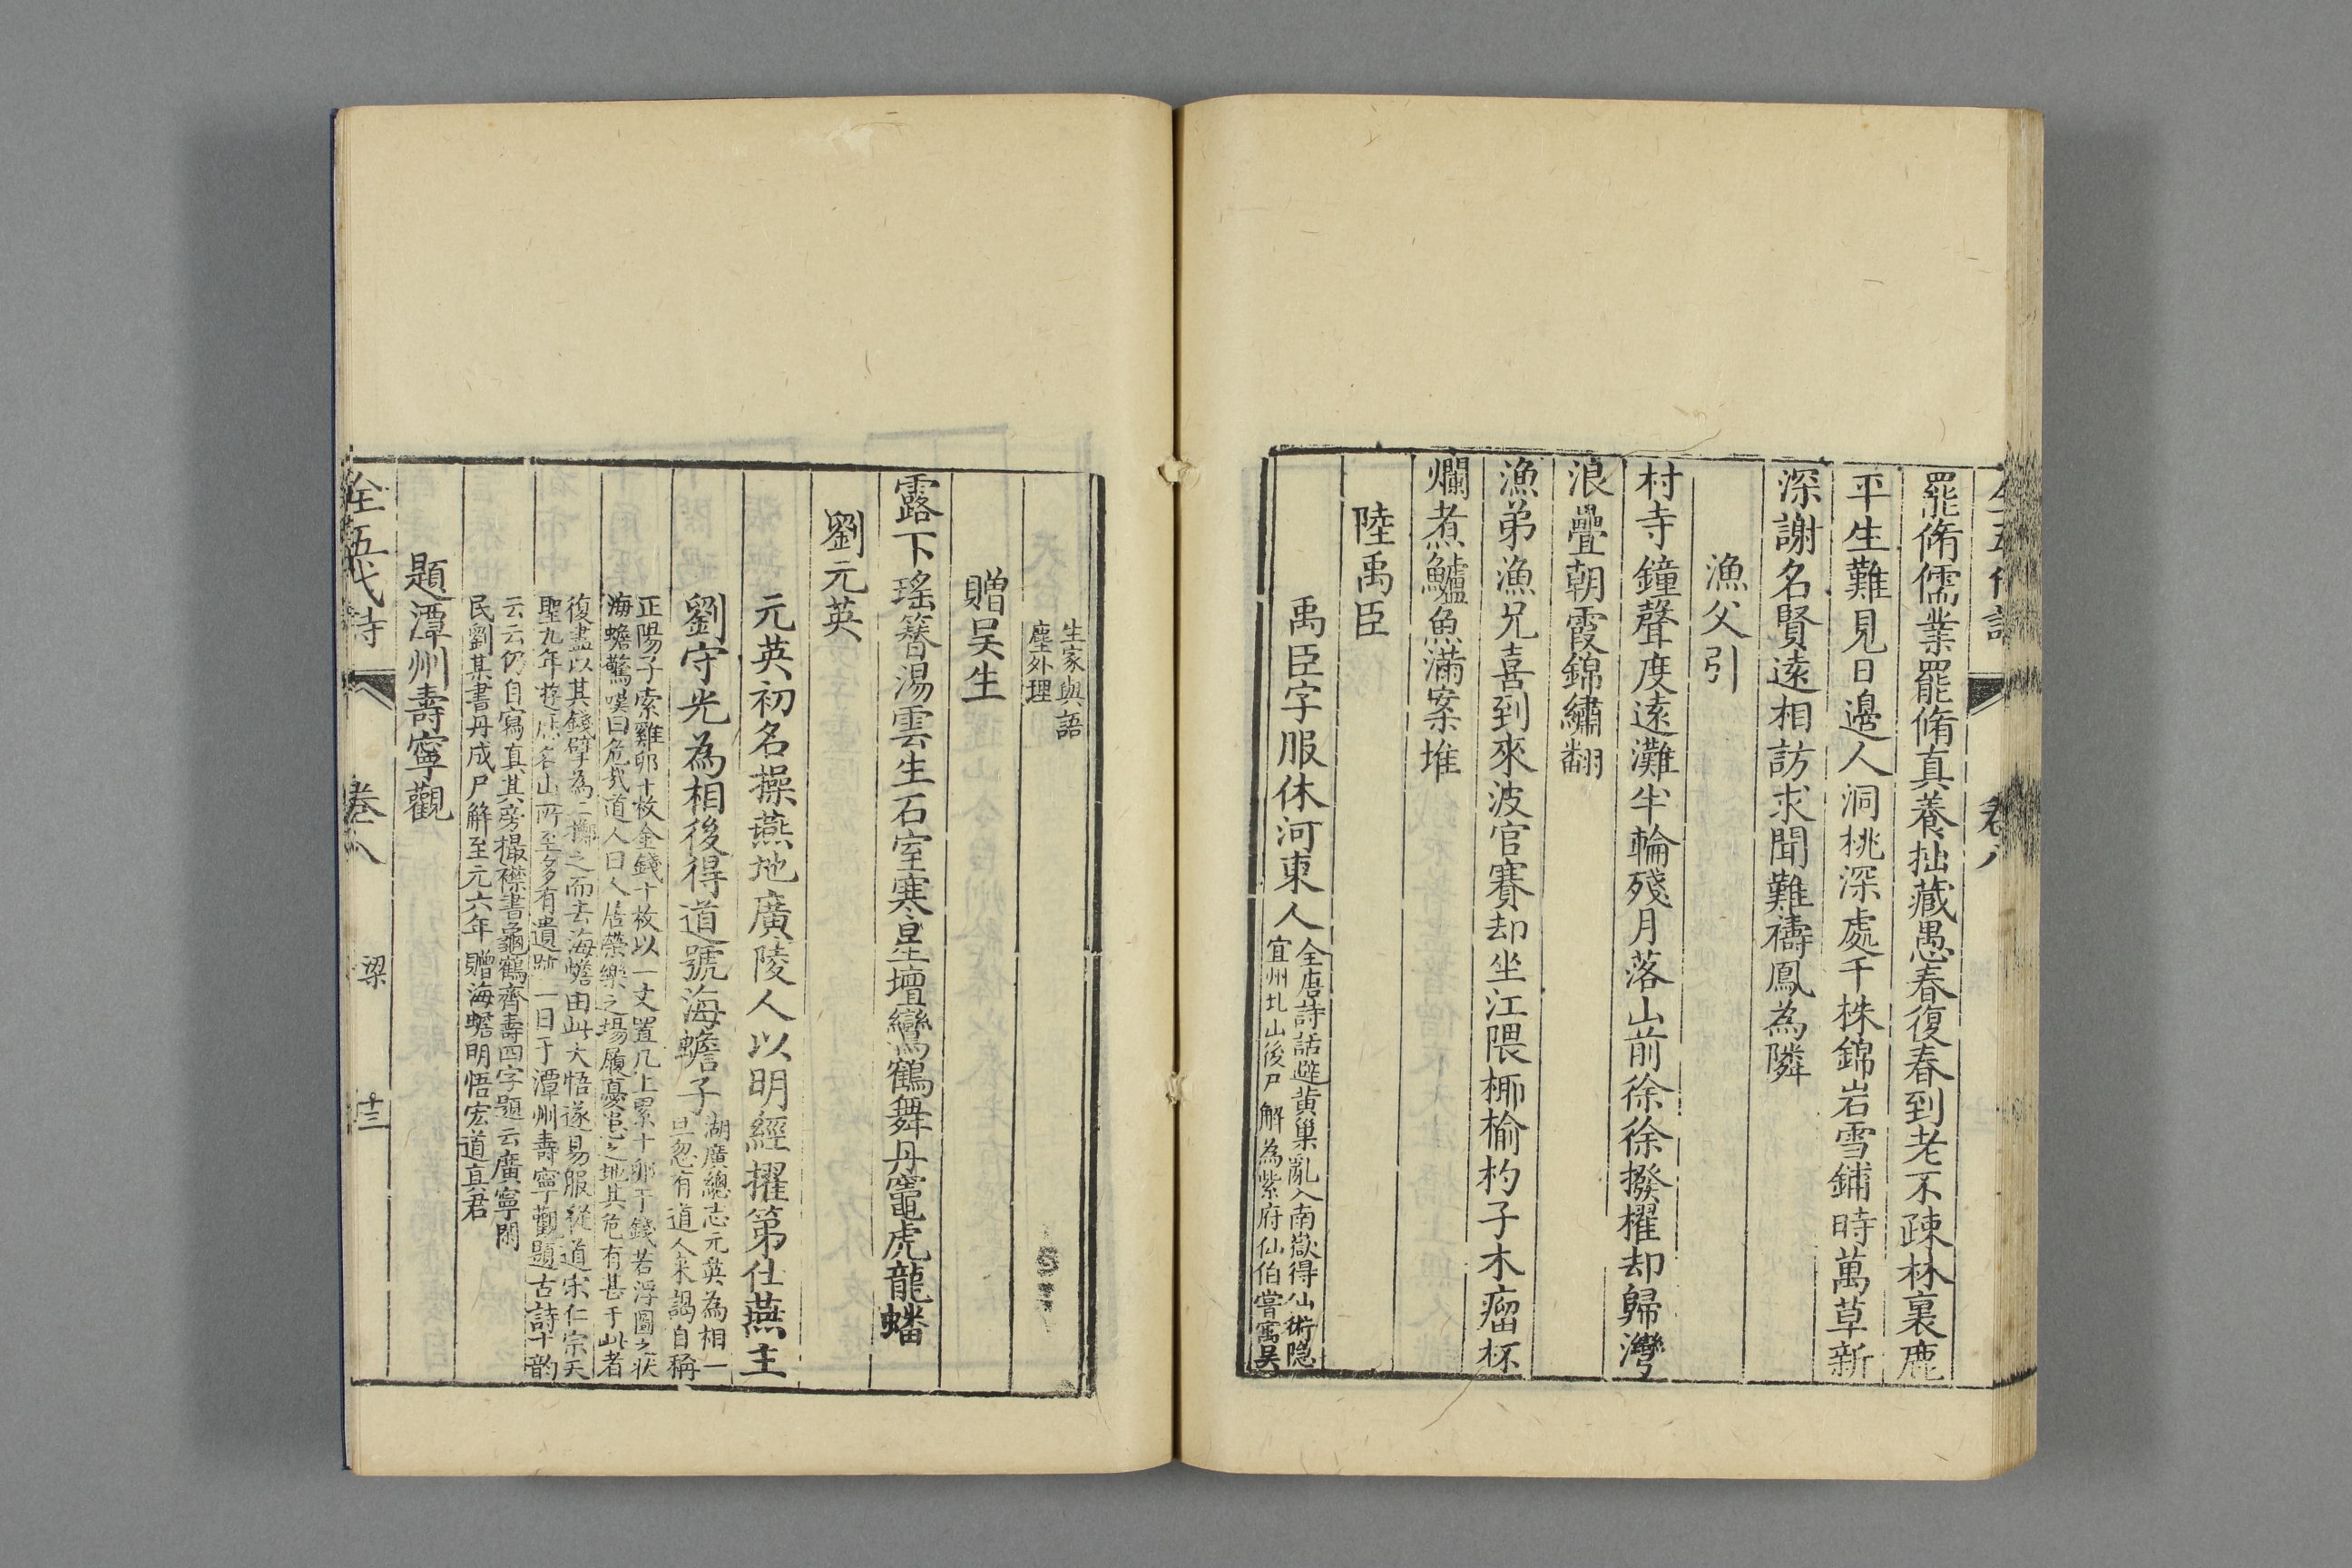 罷脩儒業罷脩真養拙藏愚春復春到老不疎林裏鹿
平生難見日邉人洞桃深處千株錦岩雪鋪時萬草新
深謝名賢逺相訪求聞難禱鳳為隣
漁父引
村寺鐘聲度逺灘半輪殘月落山前徐徐撥櫂却歸灣
浪疊朝霞錦繡翻
漁弟漁兄喜到來波官賽却坐江隈椰榆杓子木瘤杯
爛煮鱸魚滿案堆
陸禹臣
禹臣字服休河東人
全唐詩話避黄巢亂入南嶽得仙術隐
宜州北山後尸解為紫府仙伯嘗寓吴
生家與語
塵外理
贈吴生
露下瑤簪湯雲生石室寒星壇鸞鶴舞丹竈虎龍蟠
劉元英
元英初名操燕地廣陵人以明經擢第仕燕主
劉守光為相後得道號海蟾子
湖廣總志元英為相一
旦忽有道人来謁自稱
正陽子索雞卵十枚金錢十枚以一文置几上累十卵于錢若浮圖之狀
海蟾驚嘆曰危哉道人曰人居榮樂之場履憂患之地其危有甚于此者
復盡以其錢擘為二擲之而去海蟾由此大悟遂易服從道宋仁宗天
聖九年遊歴名山所至多有遺跡一日于潭州壽寧觀題古詩十韵
云云仍自寫真其旁撮襟書龜鶴齊壽四字題云廣寧閑
民劉某書丹成尸解至元六年贈海蟾明悟宏道真君
題潭州壽寧觀
全五代詩
卷八
梁
十三